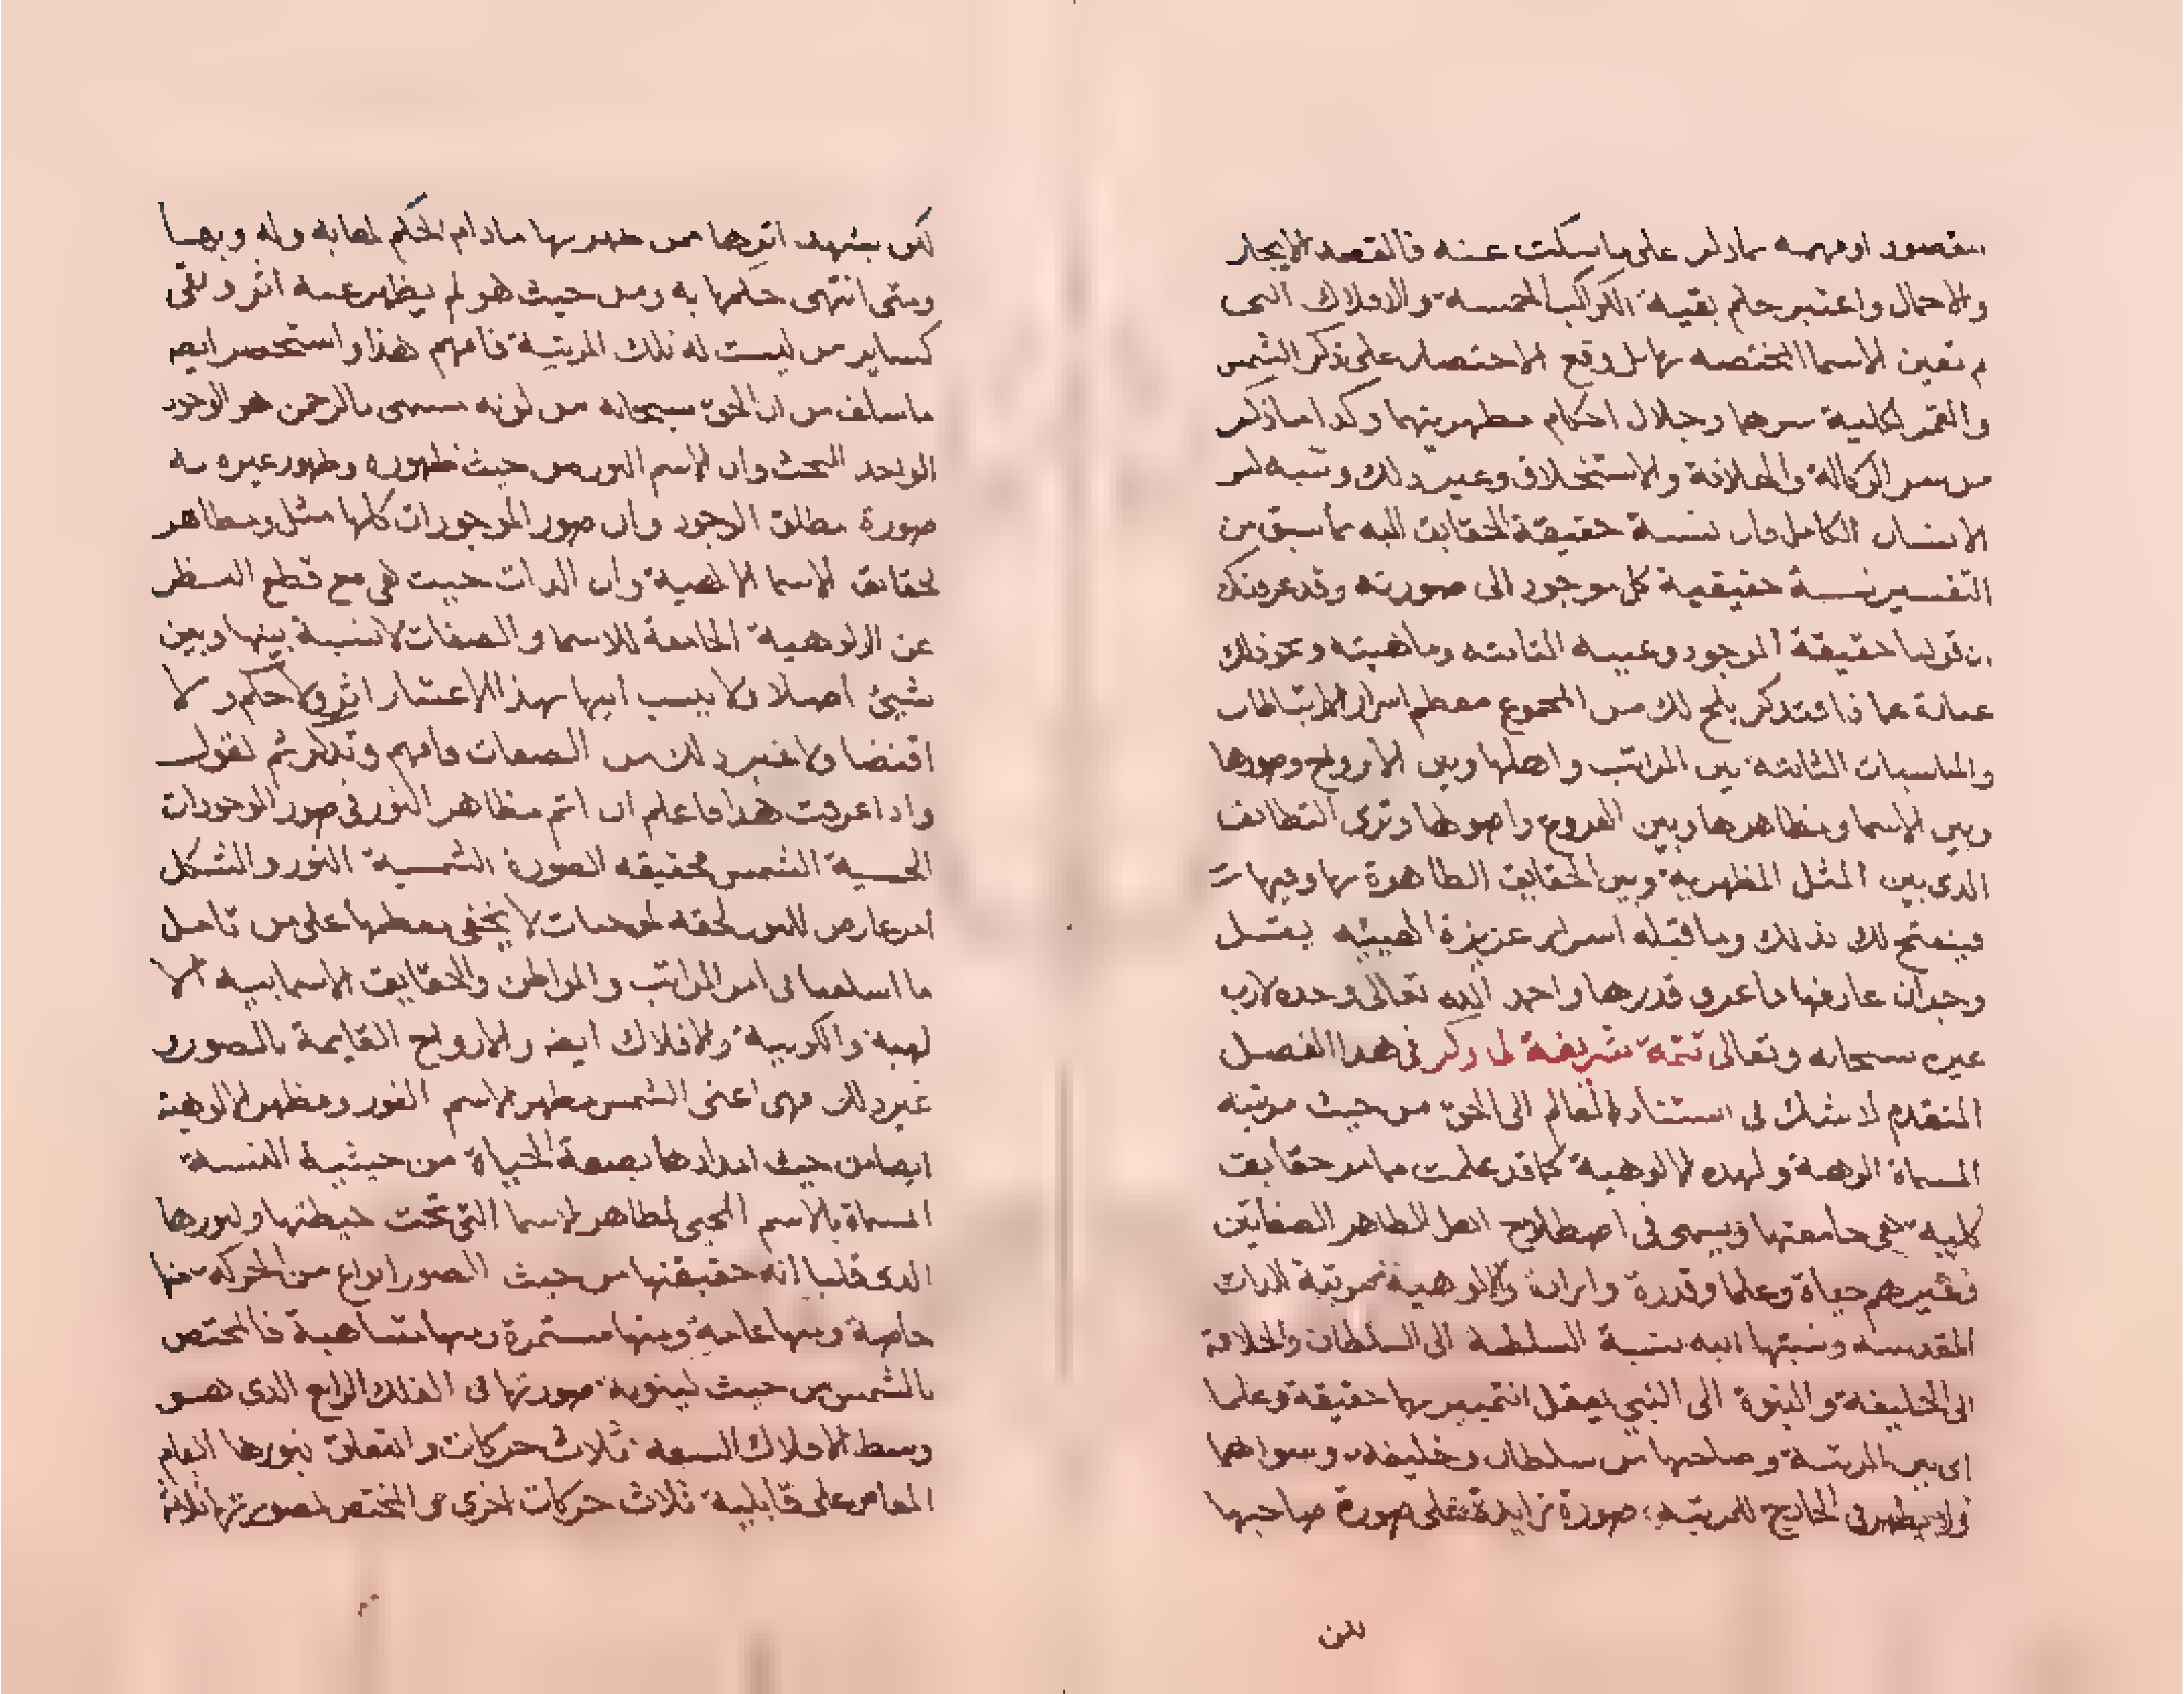 المقصود اومهمه بمادلر على ماسكت عنه فالقصد الايجار
والاحمال واعتبر حلم بقية الكواكب الخمسة والافلاك التى
م تعين الاسما المختصه بها بل وقع الاختصار على ذكر الشمس
والقمر لكلية سرهما وجلال احكام مظهريتهما وكدا ماذكر
من سر الوكالة والخلافة والاستخلاف وغير دلك ونسبه لسر
الانسان الكامل وان نسبة حقيقة الحقايق اليه بما سبق من
التفسير نسبة حقيقية كل موجود الى صورته وقد عرفتك
ان قولنا حقيقة الموجود وعينه الثابته وماهيته ونحو ذلك
عبارة عما ذا فتدكر يلح لك من المجموع معظم اسرار الارتباطات
والمناسبات الثابتة بين المراتب واهلها وبين الارواح وصورها
وبين الاسما ومظاهرها وبين الفروع واصولها وترى التطابق
الدى بين المثل المظهرية وبين الحقايق الظاهرة بها وفيها
فينفتح لك بذلك وما قبله اسرار عزيزة الهييه يقــل
وجدان عارفها فاعرف قدرها واحمد الله تعالى وحده لارب
غيره سبحانه وتعالى تتمة شريفة لما ذكر فى هدا الفصل
المتقدم لاشك فى استناد العالم الى الحق من حيث مرتبته
المسماة الوهة ولهده الالوهية كما قد علمت مما مر حقايق
كلية هى جامعتها ويسمى فى اصطلاح اهل الظاهر الصفاتين
وغيرهم حياة وعلما وقدرة وارادة والالوهية مرتبة للدات
المقدسه ونسبتها اليه نسبة السلطنة الى السلطان والخلافة
الى الخليفة والنبوة الى النبى يعقل التمييز بها حقيقة وعلما
اى بين المرتبة وصاحبها من سلطان وخليفة وسواهما
ولا يظهر فى الخارج للمرتبة صورة زايدة على صورة صاحبها
لكن
لكن يشهد اثرها ممن ظهر بها مادام الحكم لها به وله وبها
ومتى انتهى حكمها به ومن حيث هو لم يظهر عنه اثر وبقى
كساير من ليست له تلك المرتبة فافهم هذا واستحضر ايض
ماسلف من ان الحق سبحانه من كونه مسمى بالرحمن هو الوجود
الواحد البحث وان الاسم النور من حيث ظهوره وظهور غيره به
صورة مطلق الاجود وان صور الموجودات كلها مثل ومظاهر
لحقايق الاسما الالهية وان الدات حيت هى مع قطع النظر
عن الالوهية الجامعة للاسما والصفات لا نسبة بينها وبين
شيئ اصلا ولا ينسب اليها بهذا الاعتبار اثر ولا حكم ولا
اقتضا ولا غير دلك من الصفات فافهم وتدكر ثم نقول
وادا عرفت هدا فاعلم ان اتم مظاهر النور فى صور الموجودات
الحسية الشمس فحقيقه الصورة الشمسية النور والشكل
امر عارض للنور لحقه لموجبات لا يخفى معظمها على من تامل
ما اسلفنا فى امر المراتب والمواطن والحقايق الاسمايية الا
لهية والكونية والافلاك ايض والارواح القايمة بالصور و
غير دلك فهى اعنى الشمس مظهر الاسم النور ومظهر الالوهية
ايضا من حيث امدادها بصفة الحياة من حيثية النسبة
المسماة بالاسم المحيى لمظاهر الاسما التى تحت حيطتها ولنورها
الدى قلنا انه حقيقتها من حيث الصور انواع من الحركة منها
خاصة ومنها عامة ومنها مستمرة ومنها متناهية فالمختص
بالشمس من حيث لينونة صورتها فى الفلك الرابع الدى هـو
وسط الافلاك السبعه ثلاث حركات والمتعلق بنورها العام
الفايض على قابلية ثلاث حركات اخرى والمختص لصورتها ثلاثة